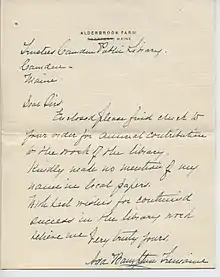 ALDERBROOK FARM
MAINE
Trustees Camden Public Library.
Camden -
Maine.
Dear Sirs
Enclosed please find check to
your order for annual contribution
to the work of the library.
Kindly make no mention of my
name in local papers.
With best wishes for continued
success in the library work
believe me
Very truly yours,